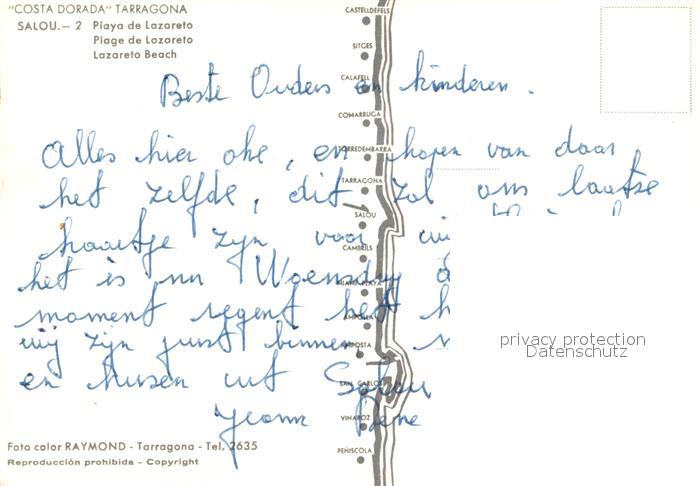 "COSTA DORADA" TARRAGONA
SALOU.— 2 Playa de Lazareto
Plage de Lazareto
Lazareto Beach
CASTELLDEFELS
SITGES
CALAFELL
COMARRUGA
TORREDEMBARRA
TARRAGONA
SALOU
CAMBRILS
AMPOLLA
SAN CARLOS
VINAROZ
PEÑISCOLA
Beste Ouders en kinderen.
Alles hier oke, en hopen van daar
het zelfde, dit zal ons laatse
kaartje zijn voor
het is nu Woensdag
moment regent het h
wij zijn juist binnen
en kussen uit Salou
Rene
privacy protection
Datenschutz
Foto color RAYMOND - Tarragona - Tel. 2635
Reproducción prohibida - Copyright